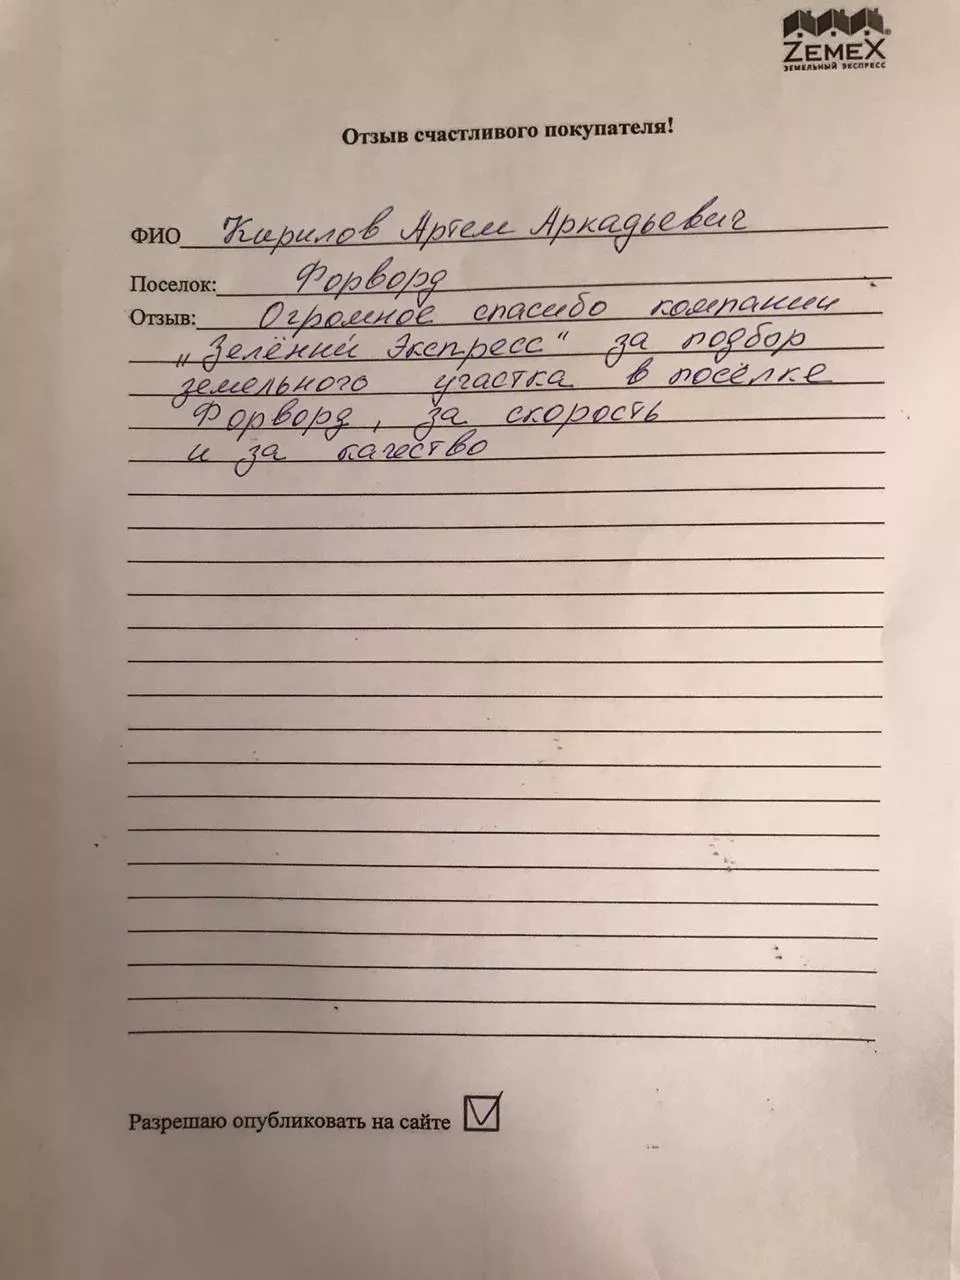 ZEMEX
ЗЕМЕЛЬНЫЙ ЭКСПРЕСС
Отзыв счастливого покупателя!
ФИО Кирилов Артем Аркадьевич
Поселок: Форворд
Отзыв: Огромное спасибо компании
„Зелёний Экспресс“ за подбор
земельного участка в посёлке
Форворд, за скорость
и за качество
Разрешаю опубликовать на сайте